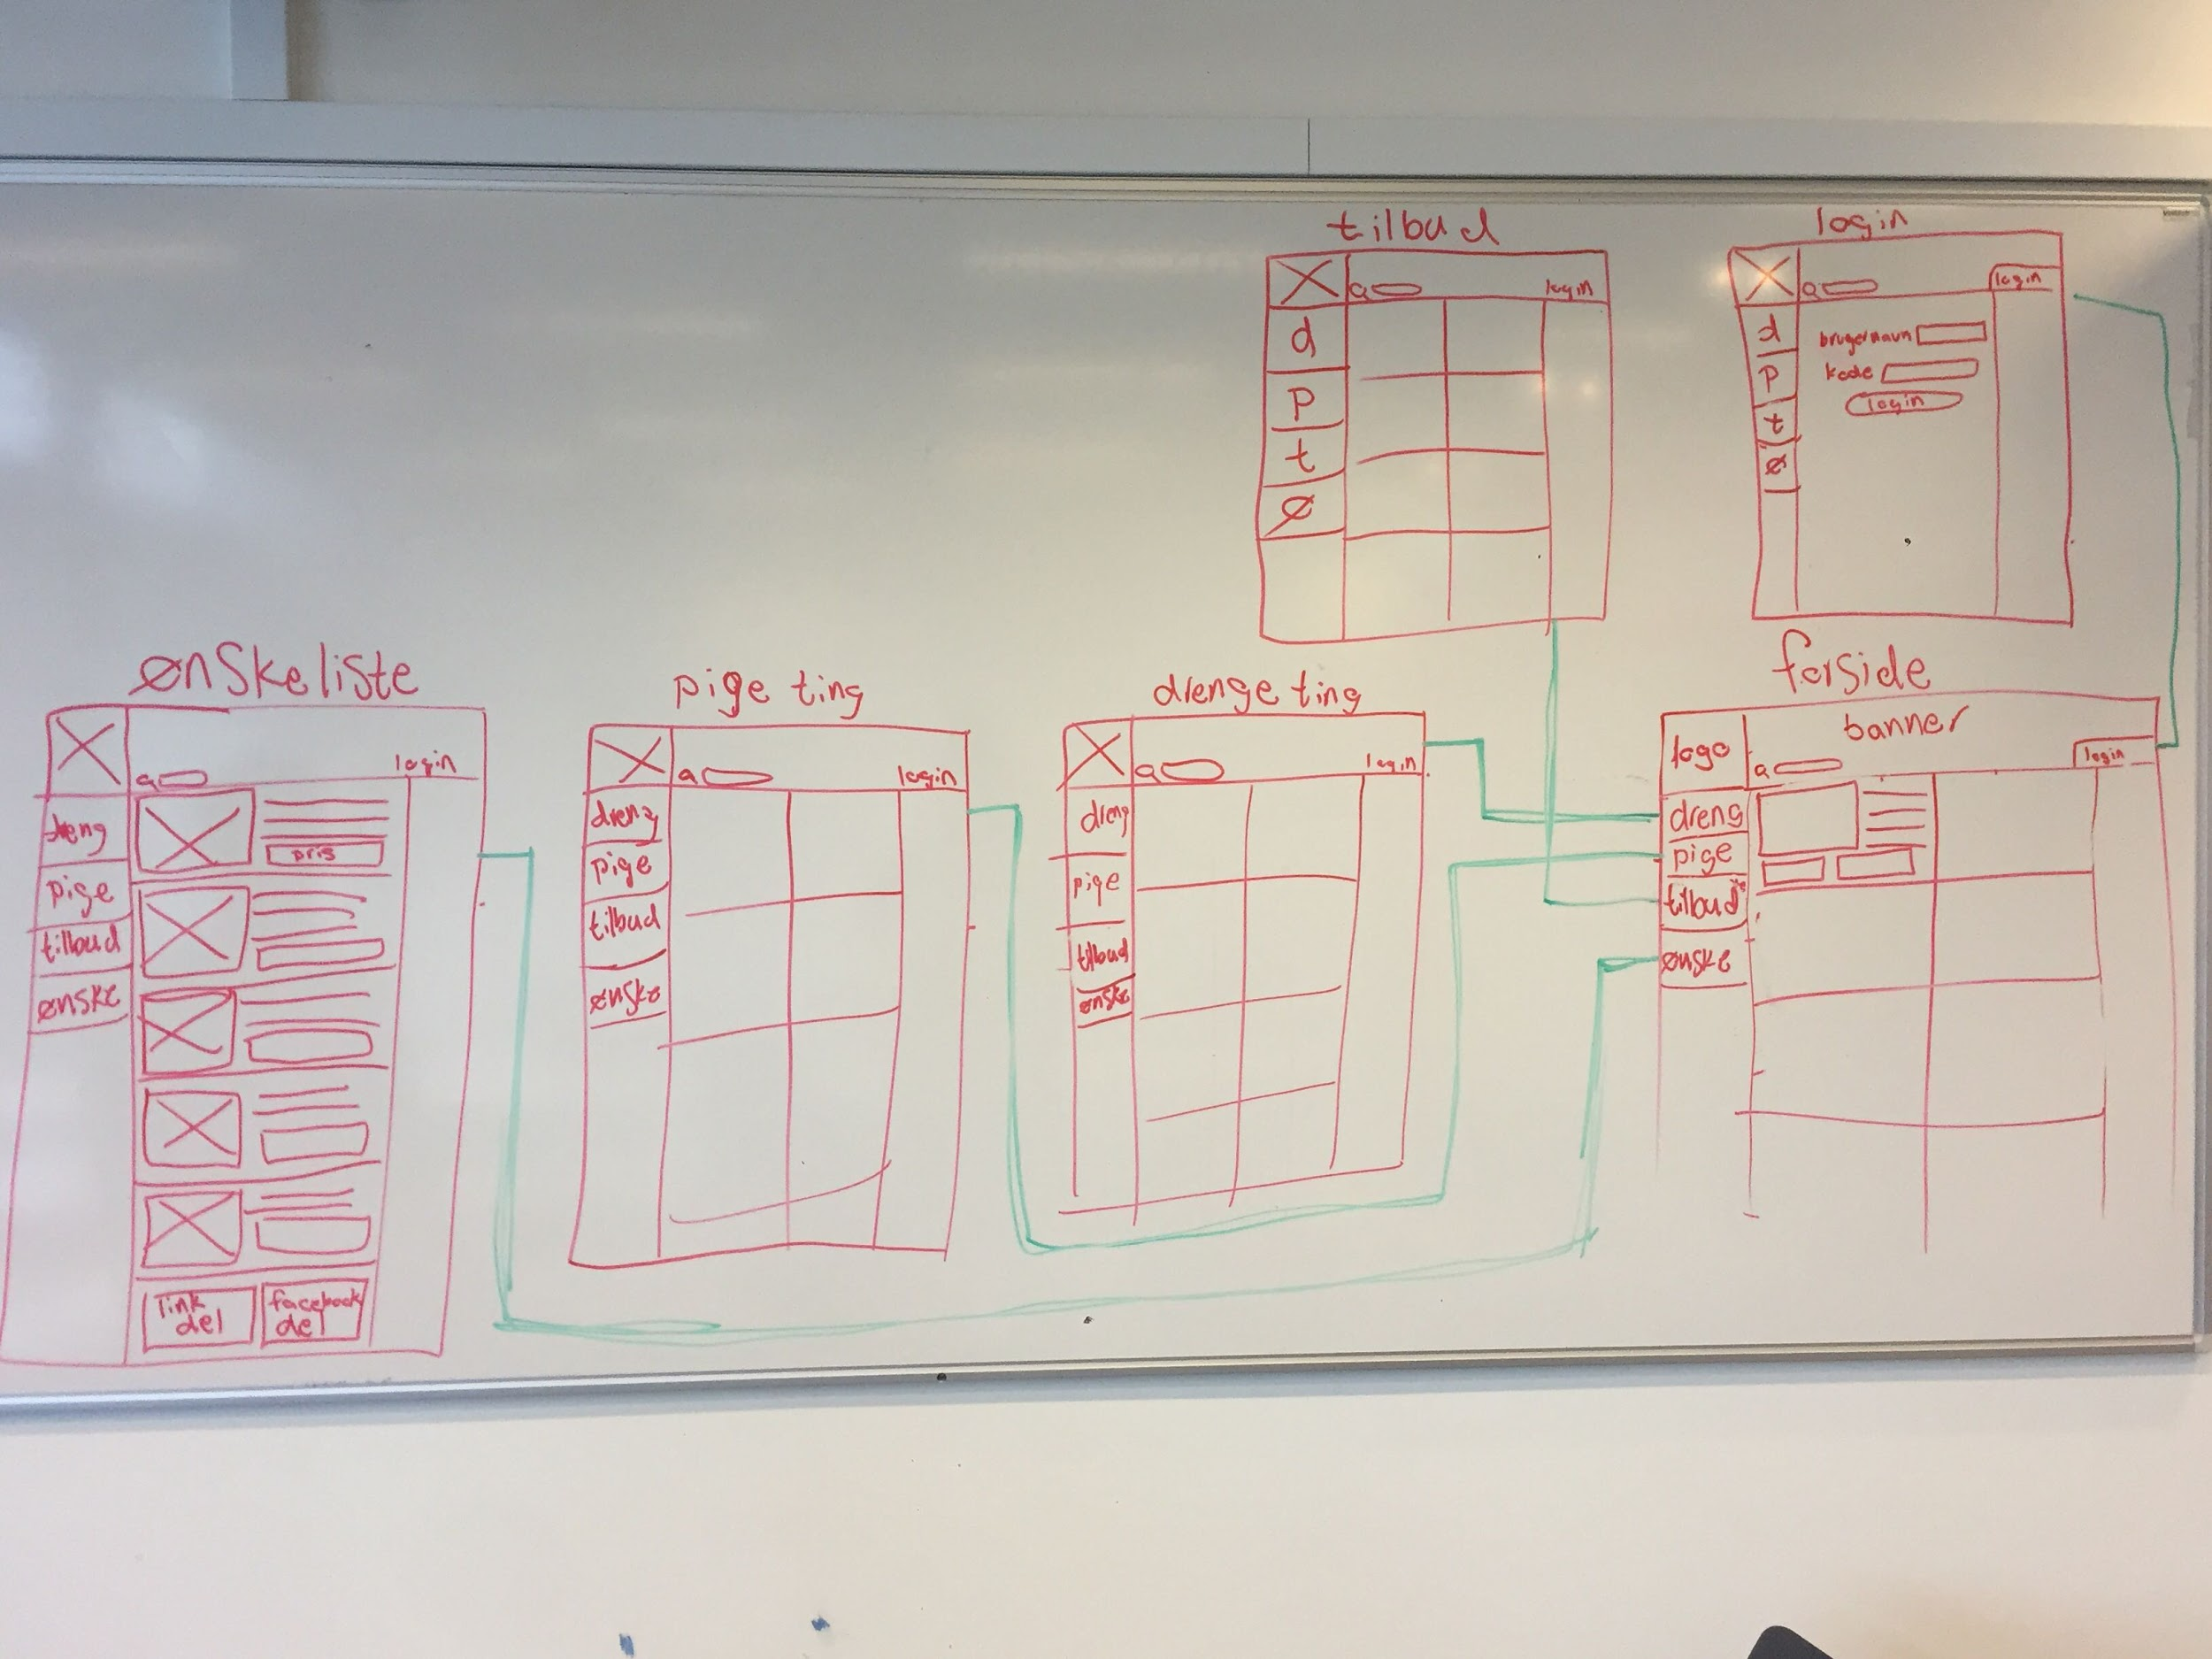 tilbud
login
d
P
t
Ø
login
login
d
P
t
Ø
brugernavn
kode
login
ønskeliste
login
dreng
pige
tilbud
ønske
pris
link
del
facebook
del
pige ting
login
dreng
pige
tilbud
ønske
drenge ting
login
dreng
pige
tilbud
ønske
forside
logo
banner
login
dreng
pige
tilbud
ønske